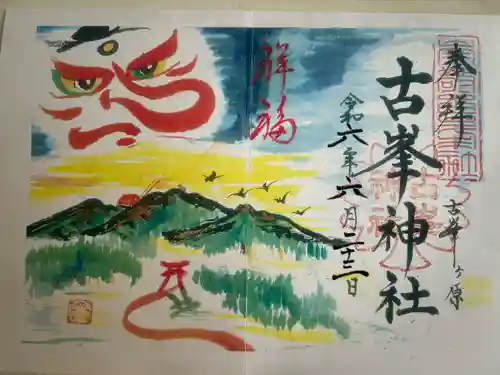 奉拝
古峯ヶ原
古峯神社
令和六年六月二十三日
祥福